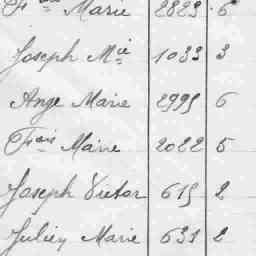 Fçois Marie 2823 6
Joseph Mie 1033 3
Ange Marie 2995 6
Fçois Marie 2022 5
Joseph Victor 615 2
Julien Marie 631 2